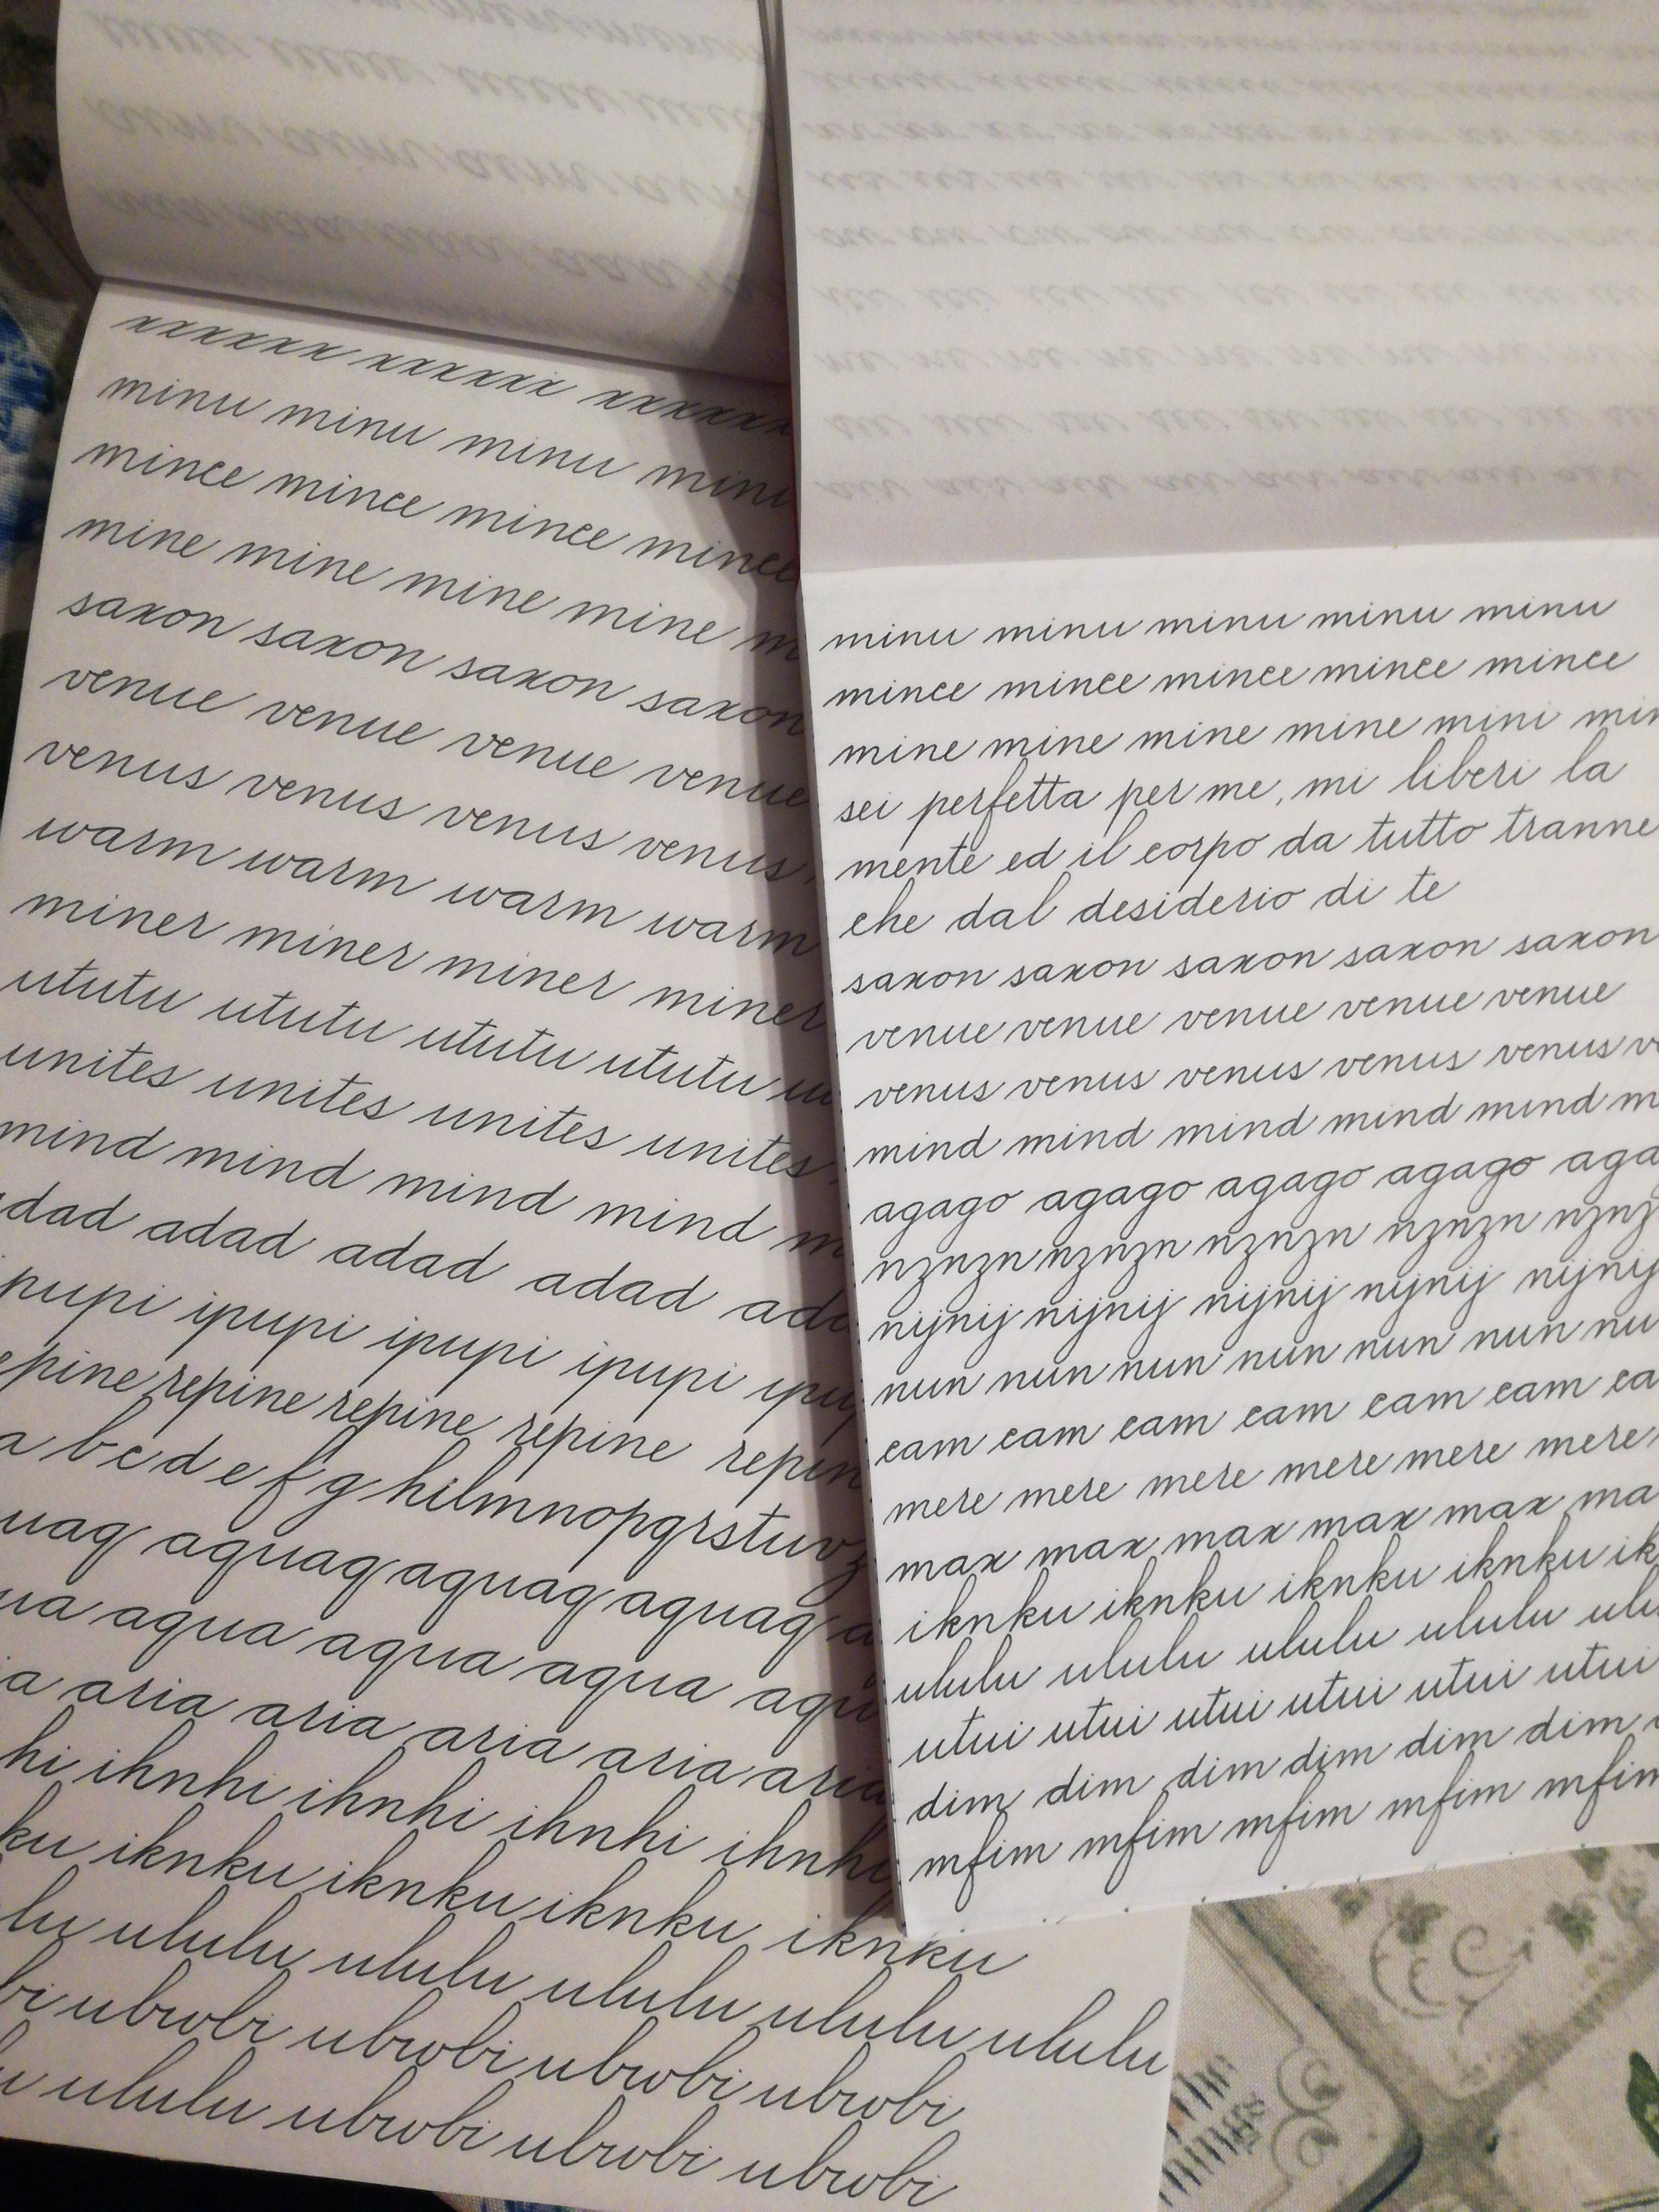 xxxxxx xxxxxx xxxxxx
minu minu minu minu
mince mince mince mince
mine mine mine mine m
saxon saxon saxon saxon
venue venue venue venue
venus venus venus venus
warm warm warm warm
miner miner miner miner
ututu ututu ututu ututu u
unites unites unites unites
mind mind mind mind m
dad adad adad adad ada
pupi ipupi ipupi ipupi ipup
epine repine repine repine repin
a b c d e f g h i l m n o p q r s t u v z
uaq aquaq aquaq aquaq a
ua aqua aqua aqua aqu
ia aria aria aria aria aria
hi ihnhi ihnhi ihnhi ihnhi
ku iknku iknku iknku iknku
lu ululu ululu ululu ululu ululu
bi ubwbi ubwbi ubwbi ubwbi
u ululu ubwbi ubwbi ubwbi
minu minu minu minu minu
mince mince mince mince mince
mine mine mine mine mini min
sei perfetta per me, mi liberi la
mente ed il corpo da tutto tranne
che dal desiderio di te
saxon saxon saxon saxon saxon
venue venue venue venue venue
venus venus venus venus venus ve
mind mind mind mind mind m
agago agago agago agago aga
nznzn nznzn nznzn nznzn nznz
nijnij nijnij nijnij nijnij nijnij
nun nun nun nun nun nun nu
cam cam cam cam cam cam ca
mere mere mere mere mere mere
max max max max max ma
iknku iknku iknku iknku ik
ululu ululu ululu ululu ulu
utui utui utui utui utui utui
dim dim dim dim dim dim
mfim mfim mfim mfim mfim